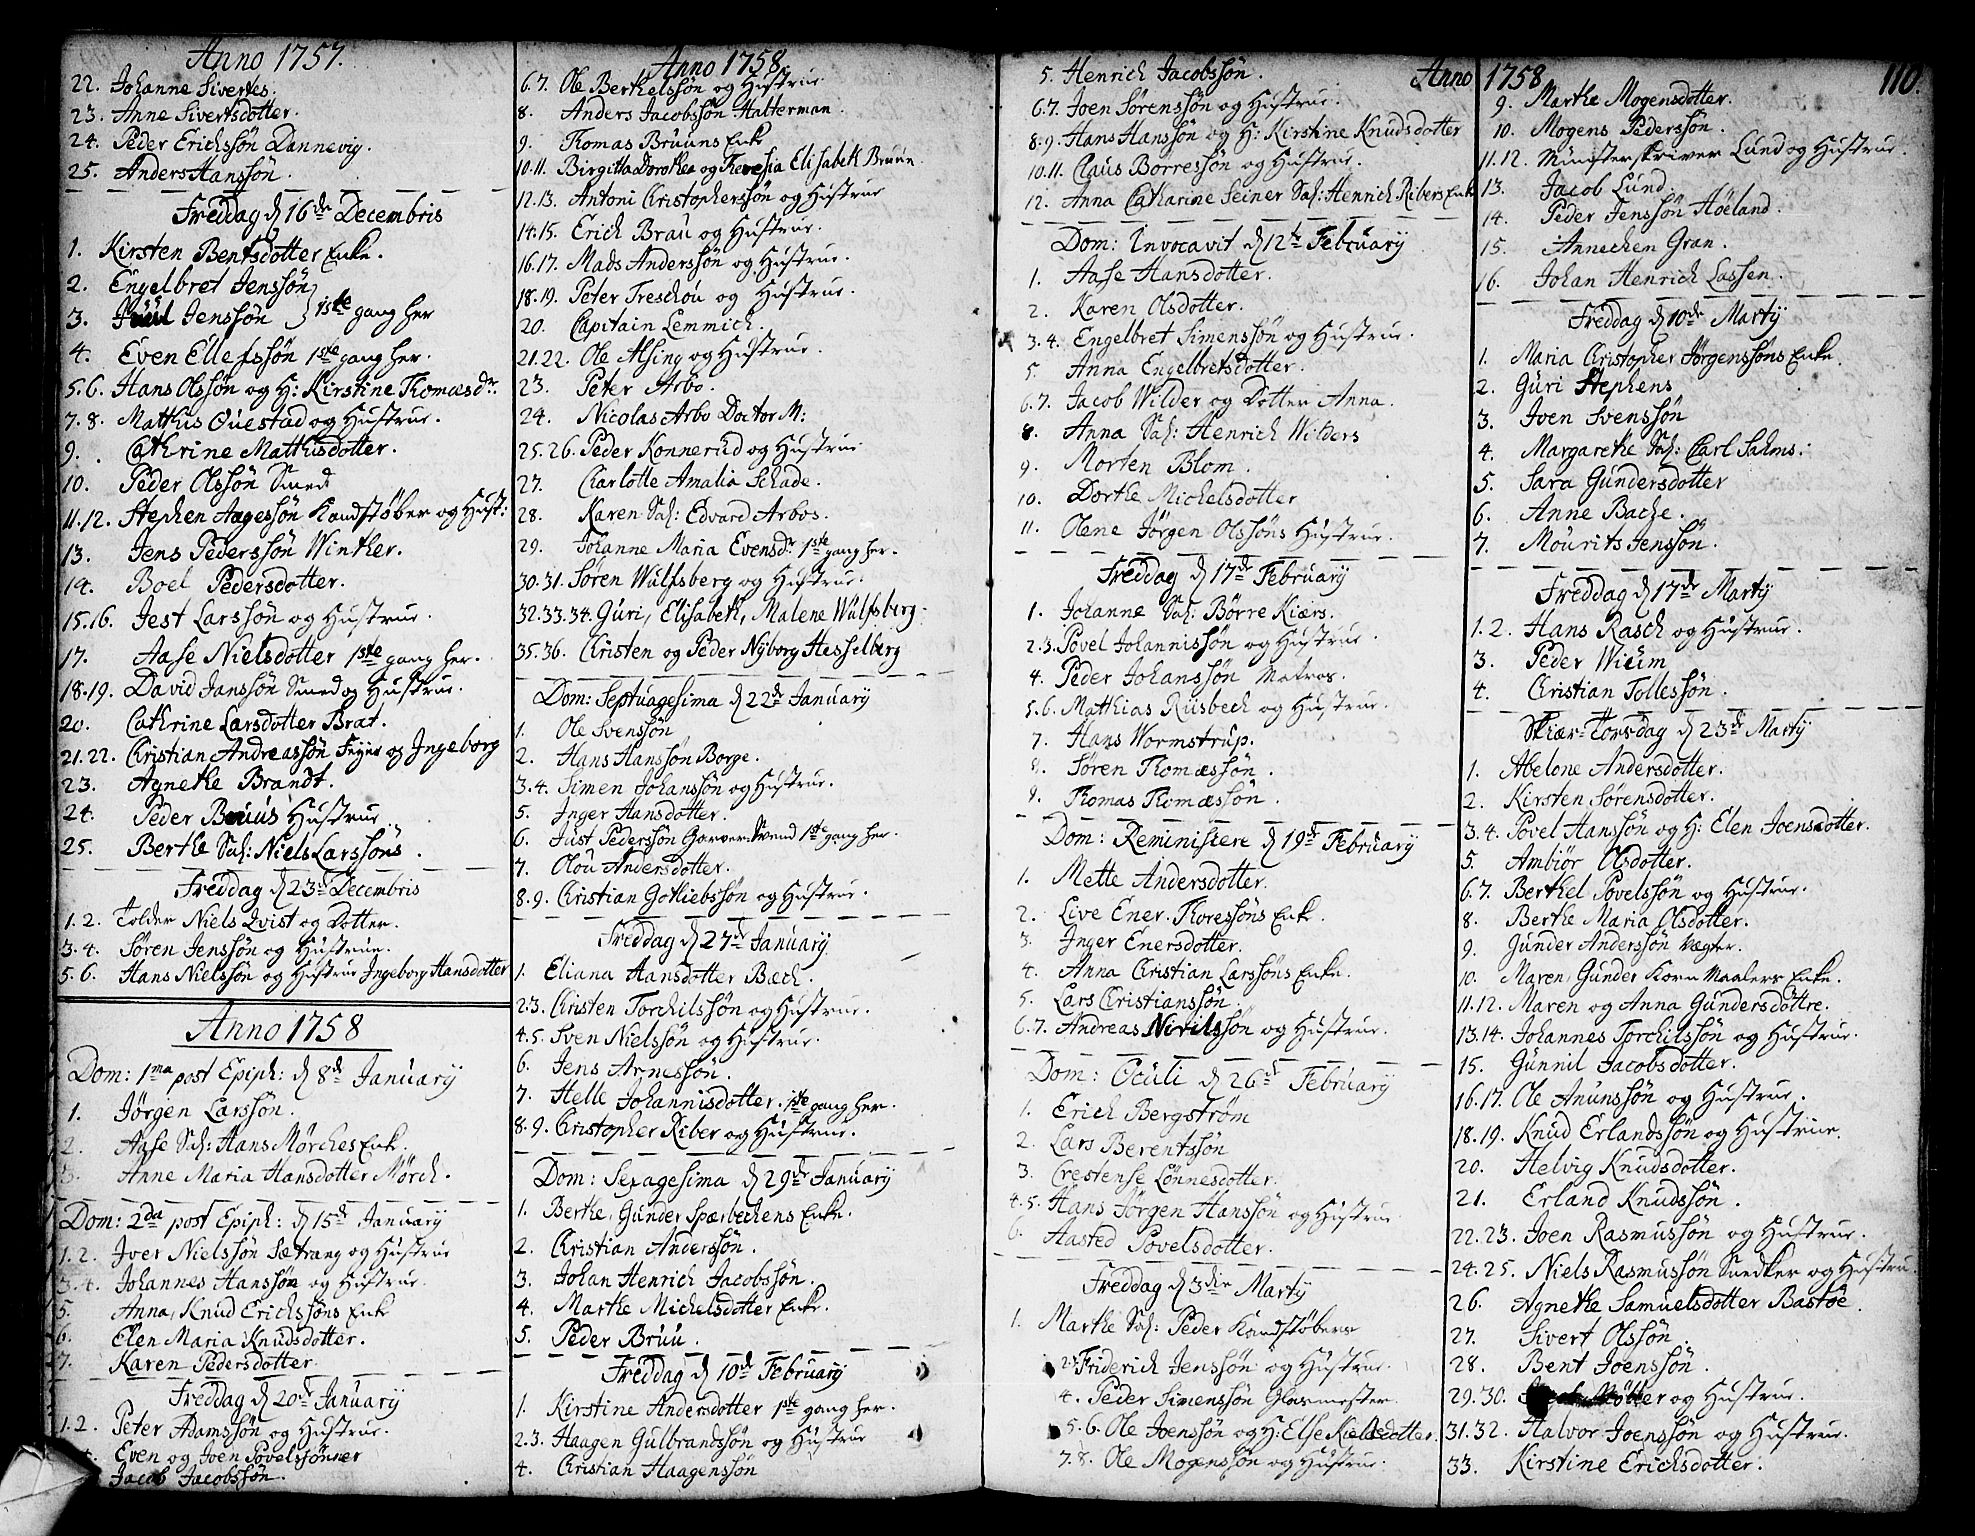 Anno 1757.
22. Johanne Sivertes.
23. Anne Sivertsdotter.
24. Peder Erichssøn Dannevig.
25. Anders Hanssøn.
Freddag d 16de Decembris
1. Kirsten Bentsdotter Enke.
2. Engelbret Jenssøn
3. Juul Jenssøn } 1ste gang her
4. Even Ellefssøn 1ste gang her.
5.6. Hans Olssøn og H: Kirstine Thomæsdr.
7.8. Mathis Questad og Hustrue.
9. Cathrine Mathisdotter.
10. Peder Olssøn Smed
11.12. Stephen Aagessøn Kandstøber og Hust:
13. Jens Pederssøn Winther.
14. Boel Pedersdotter.
15.16. Jest Larssøn og Hustrue.
17. Aase Nielsdotter 1ste gang her.
18.19. David Janssøn Smed og Hustrue.
20. Cathrine Larsdotter Brat.
21.22. Christian Andreassøn Feyer og Ingeborg
23. Agnethe Brandt.
24. Peder Bruus Hustrue.
25. Berthe Sal: Niels Larssøns.
Freddag d 23de Decembris
1.2. Tolder Niels Qvist og Dotter.
3.4. Søren Jenssøn og Hustrue.
5.6. Hans Nielssøn og Hustrue Ingeborg Hansdotter
Anno 1758
Dom: 1ma post Epiph: d 8de Januarij
1. Jørgen Larssøn.
2. Aase Sal: Hans Mørches Enk.
3. Anne Maria Hansdotter Mørch.
Dom: 2da post Epiph: d 15de Januarij
1.2. Iver Nielssøn Sætrang og Hustrue
3.4. Johannes Hanssøn og Hustrue.
5. Anna, Knud Erichssøns Enke
6. Elen Maria Knudsdotter.
7. Karen Pedersdotter.
Freddag d 20de Januarij
1.2. Peter Adamssøn og Hustrue.
4. Even og Joen Povelssønner
Jacob Jacobssøn.
Anno 1758.
6.7. Ole Berthelssøn og Hustrue
8. Anders Jacobssøn Halterman.
9. Thomas Bruuns Enke
10.11. Birgitta Dorothea og Theresia Elisabeth Bruun.
12.13. Antoni Christopherssøn og Hustrue
14.15. Erich Brau og Hustrue.
16.17. Mads Anderssøn og Hustrue.
18.19. Peter Treschou og Hustrue.
20. Capitain Lemmich.
21.22. Ole Alsing og Hustrue.
23. Peter Arbo.
24. Nicolas Arbo Doctor M:
25.26. Peder Konnerud og Hustrue
27. Charlotte Amalia Schade.
28. Karen Sal: Edvard Arbos.
29. Johanne Maria Evensdr. 1ste gang her.
30.31. Søren Wulfsberg og Hustrue.
32.33.34. Guri, Elisabeth, Malene Wulfsberg.
35.36. Christen og Peder Nyborg Hesselberg
Dom: Septuagesima d 22de Januarij
1. Ole Svenssøn
2. Hans Hanssøn Borge.
3.4. Simen Johanssøn og Hustrue.
5. Inger Hansdotter.
6. Just Pederssøn Garver-Svend 1ste gang her.
7. Olou Andersdotter.
8.9. Christian Gotliebssøn og Hustrue.
Freddag d 27de Januarij
1. Eliana Hansdotter Bæch.
2.3. Christen Torchilssøn og Hustrue.
4.5. Sven Nielssøn og Hustrue.
6. Jens Arnessøn.
7. Helle Johannisdotter. 1ste gang her.
8.9. Christopher Riber og Hustrue.
Dom: Sexagesima d 29de Januarij
1. Berthe, Gunder Spærbechens Enke.
2. Christian Anderssøn.
3. Johan Henrich Jacobssøn.
4. Marthe Michelsdotter Enke.
5. Peder Bruu.
Freddag d 10de Februarij
1. Kirstine Andersdotter 1ste gang her.
2.3. Haagen Gulbrandssøn og Hustrue
4. Christian Haagenssøn
Anno 1758
110.
5. Henrich Jacobssøn.
6.7. Joen Sørenssøn og Hustrue.
8.9. Hans Hanssøn og H: Kirstine Knudsdotter
10.11. Claus Borressøn og Hustrue.
12. Anna Catharine Seiner Sal: Henrich Ribers Enke
Dom: Invocavit d 12te Februarij
1. Aase Hansdotter.
2. Karen Olsdotter.
3.4. Engelbret Simenssøn og Hustrue.
5. Anna Engelbretsdotter.
6.7. Jacob Wilder og Dotter Anna.
8. Anna Sal: Henrich Wilders
9. Morten Blom.
10. Dorthe Michelsdotter
11. Olene Jørgen Olssøns Hustrue.
Freddag d 17de Februarij
1. Johanne Sal: Børre Kiærs.
2.3. Povel Johannissøn og Hustrue.
4. Peder Johanssøn Matros.
5.6. Matthias Riisbech og Hustrue.
7. Hans Wormstrup.
8. Søren Thomæssøn.
9. Thomas Thomæssøn.
Dom: Reminiscere d 19de Februarij
1. Mette Andersdotter.
2. Live Ener. Thoressøns Enk.
3. Inger Enersdotter.
4. Anna Christian Larssøns Enke.
5. Lars Christianssøn.
6.7. Andreas Nirilssøn og Hustrue.
Dom: Oculi d 26de Februarij
1. Erich Bergstrøm
2. Lars Berentssøn
3. Crestense Lønnesdotter.
4.5. Hans Jørgen Hanssøn og Hustrue
6. Aasted Povelsdotter.
Freddag d 3die Martij
1. Marthe Sal: Peder Kandstøbers
2.3. Friderich Jenssøn og Hustrue.
4. Peder Simenssøn Glasmester.
5.6. Ole Joenssøn og H: Else Kieldsdotter.
7.8. Ole Mogenssøn og Hustrue.
9. Marthe Mogensdotter.
10. Mogens Pederssøn.
11.12. Mønsterskriver Lund og Hustrue.
13. Jacob Lund.
14. Peder Jenssøn Høeland.
15. Annechen Gran.
16. Johan Henrich Lassen.
Freddag d 10de Martij
1. Maria Christopher Jørgenssøns Enke.
2. Guri Stephens
3. Joen Svenssøn
4. Margarethe Sal: Carl Sahms:
5. Sara Gundersdotter
6. Anne Bache.
7. Mourits Jenssøn.
Freddag d 17de Martij
1.2. Hans Rasch og Hustrue.
3. Peder Wium
4. Christian Tollessøn.
Skiær-Torsdag d 23de Martij
1. Abelone Andersdotter.
2. Kirsten Sørensdotter.
3.4. Povel Hanssøn og H: Elen Joensdotter.
5. Ambiør Olsdotter.
6.7. Berthel Povelssøn og Hustrue.
8. Berthe Maria Olsdotter.
9. Gunder Anderssøn Vægter.
10. Maren, Gunder Korn Maalers Enke.
11.12. Maren og Anna Gundersdøttre.
13.14. Johannes Torchilssøn og Hustrue.
15. Gunnil Jacobsdotter.
16.17. Ole Anunssøn og Hustrue.
18.19. Knud Erlandssøn og Hustrue.
20. Helvig Knudsdotter.
21. Erland Knudssøn.
22.23. Joen Rasmussøn og Hustrue.
24.25. Niels Rasmussøn Snedker og Hustru.
26. Agnethe Samuelsdotter Bastøe.
27. Sivert Olssøn.
28. Bent Joenssøn.
29.30. og Hustrue.
31.32. Halvor Joenssøn og Hustrue.
33. Kirstine Erichsdotter.